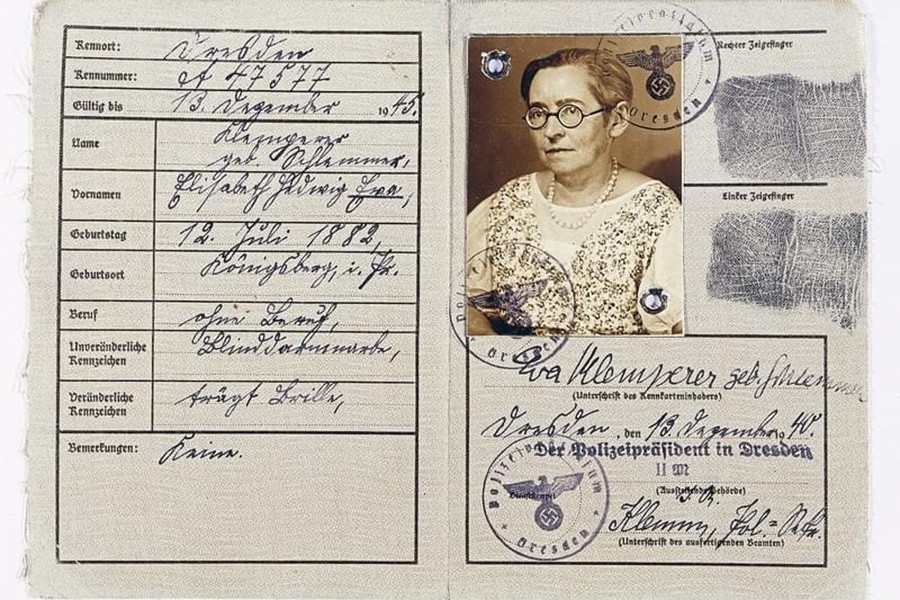 Kennort: Dresden
Kennnummer: A 47577
Gültig bis 13. Dezember 1945.
Name Klemperer
geb. Schlemmer,
Vornamen Elisabeth Hedwig Eva,
Geburtstag 12. Juli 1882,
Geburtsort Königsberg, i. Pr.
Beruf ohne Beruf,
Unveränderliche Kennzeichen Blinddarmnarbe,
Veränderliche Kennzeichen trägt Brille,
Bemerkungen: Keine.
Polizeipräsidium
Dresden
Rechter Zeigefinger
Linker Zeigefinger
Polizeipräsidium
Dresden
Eva Klemperer geb. Schlemmer
(Unterschrift des Kennkarteninhabers)
Dresden, den 13. Dezember 1940.
Der Polizeipräsident in Dresden
II M
(Ausstellende Behörde)
J. A.
Klemm, Pol.=Sekr.
(Unterschrift des ausfertigenden Beamten)
Polizeipräsidium
Dienststempel
Dresden